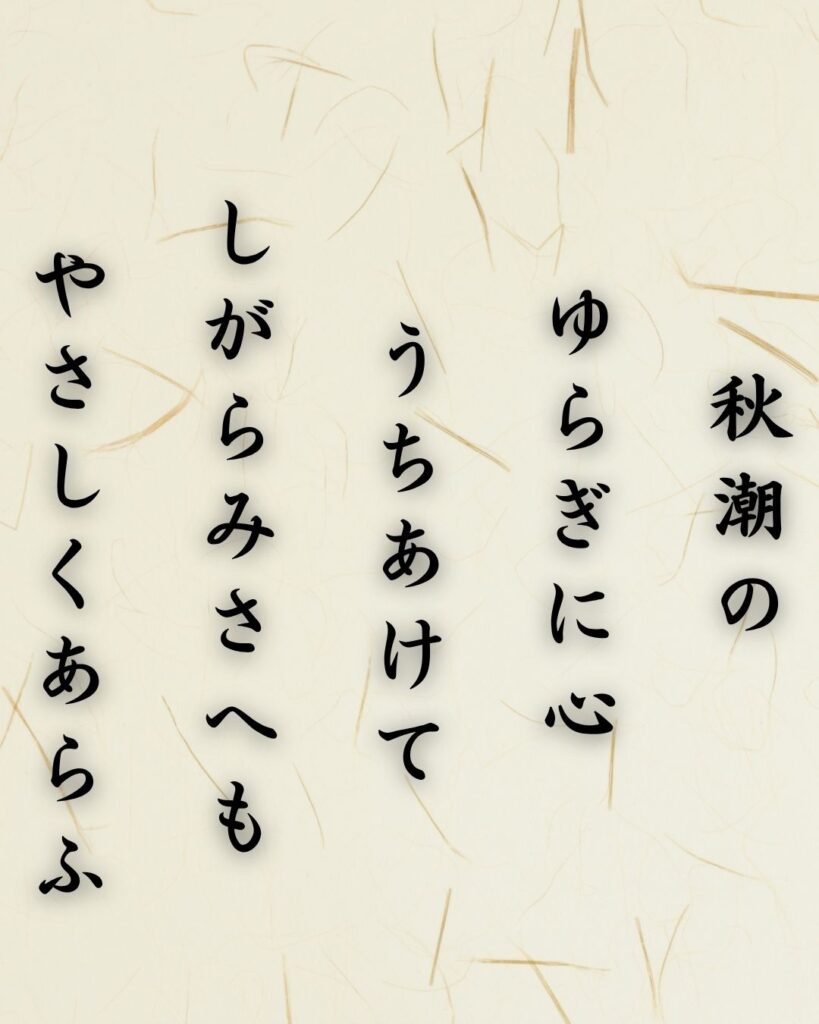 秋潮の
ゆらぎに心
うちあけて
しがらみさへも
やさしくあらふ